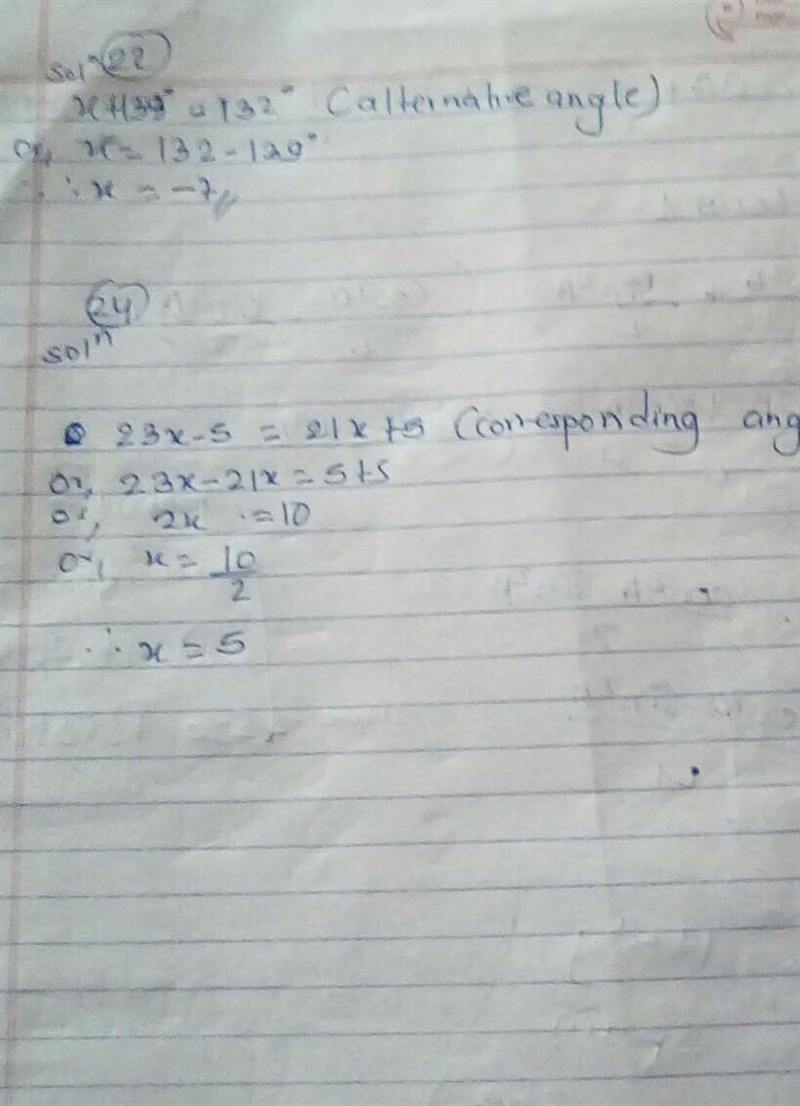 solⁿ 22
x+139° = 132° (alternative angle)
or, x = 132 - 139°
∴ x = -7
24
solⁿ
23x-5 = 21x+5 (corresponding ang
or, 23x-21x = 5+5
or, 2x = 10
or, x = 10/2
∴ x = 5